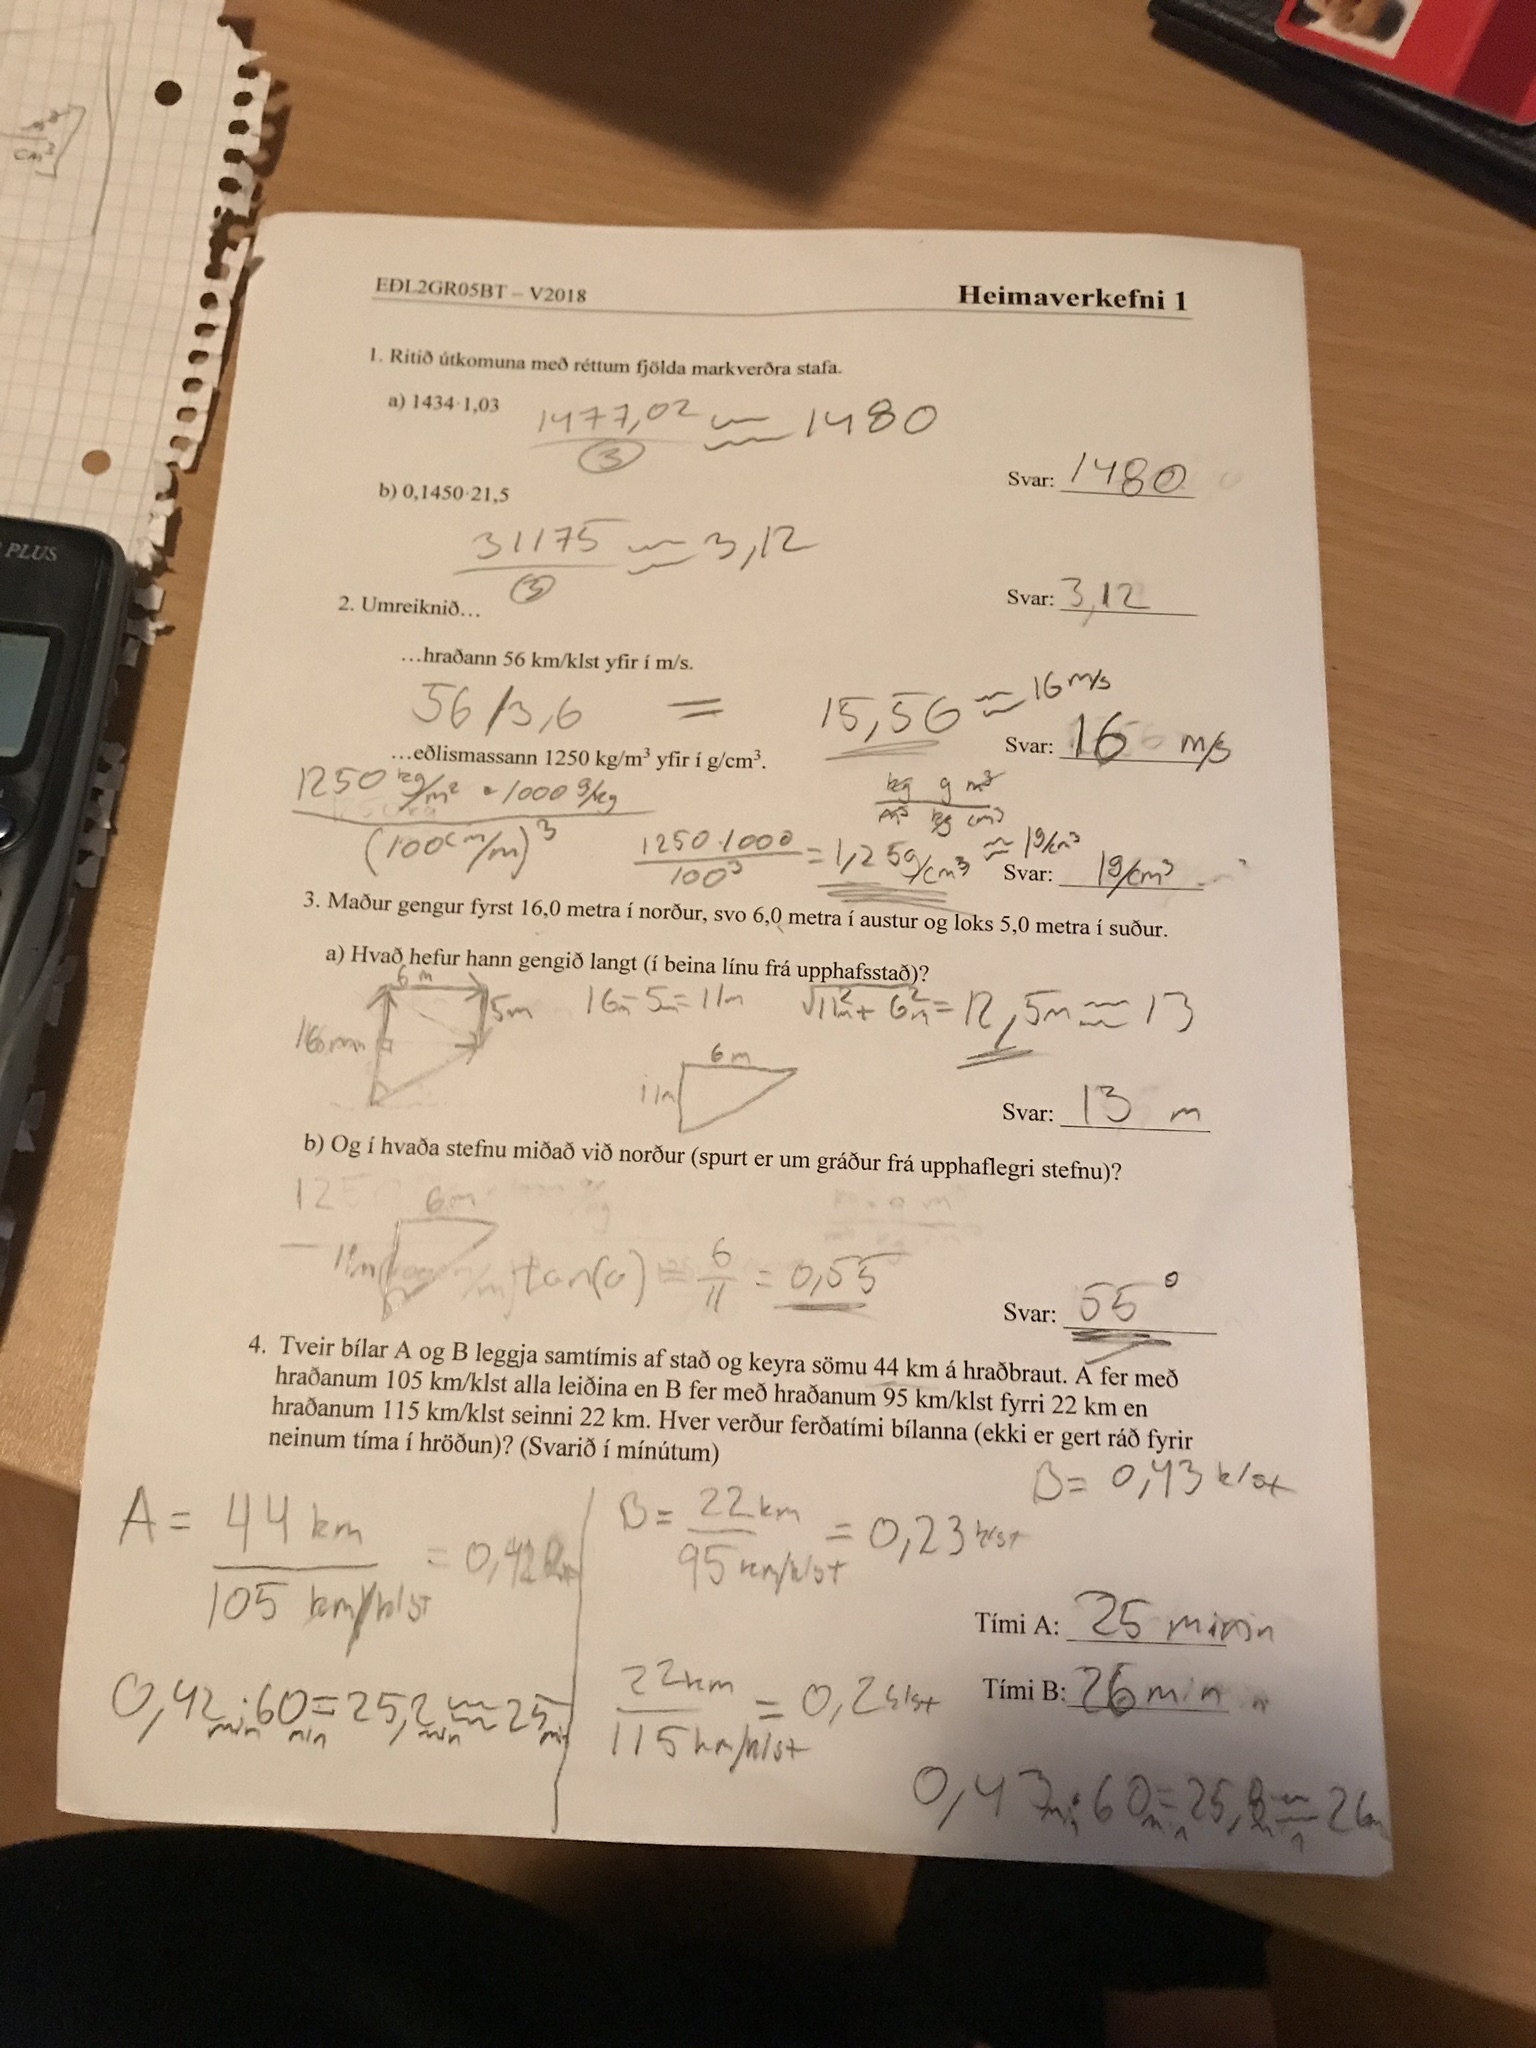 PLUS
EÐL2GR05BT – V2018
Heimaverkefni 1
1. Ritið útkomuna með réttum fjölda markverðra stafa.
a) 1434·1,03
1477,02 ≈ 1480
3
Svar: 1480
b) 0,1450·21,5
31175 ≈ 3,12
3
Svar: 3,12
2. Umreiknið…
…hraðann 56 km/klst yfir í m/s.
56/3,6 = 15,56 ≈ 16 m/s
Svar: 16 m/s
…eðlismassann 1250 kg/m³ yfir í g/cm³.
1250 kg/m² · 1000 g/kg
(100cm/m)³
kg g m³
m³ kg cm³
1250·1000
100³
= 1,25g/cm³ ≈ 1g/cm³
Svar: 1g/cm³
3. Maður gengur fyrst 16,0 metra í norður, svo 6,0 metra í austur og loks 5,0 metra í suður.
a) Hvað hefur hann gengið langt (í beina línu frá upphafsstað)?
6 m
5m
16m-5m=11m
√11m²+6m² = 12,5m ≈ 13
6m
11m
Svar: 13 m
b) Og í hvaða stefnu miðað við norður (spurt er um gráður frá upphaflegri stefnu)?
6m
11m
tan(o) = 6/11 = 0,55
Svar: 55°
4. Tveir bílar A og B leggja samtímis af stað og keyra sömu 44 km á hraðbraut. A fer með
hraðanum 105 km/klst alla leiðina en B fer með hraðanum 95 km/klst fyrri 22 km en
hraðanum 115 km/klst seinni 22 km. Hver verður ferðatími bílanna (ekki er gert ráð fyrir
neinum tíma í hröðun)? (Svarið í mínútum)
B = 0,43 klst
A = 44 km
105 km/klst
= 0,42
B = 22 km
95 km/klst
= 0,23 klst
Tími A: 25 min
22km
115 km/klst
= 0,2 klst
Tími B: 26 min
0,42 min · 60 min = 25,2 min ≈ 25 min
0,43 · 60 min = 25,8 min ≈ 26